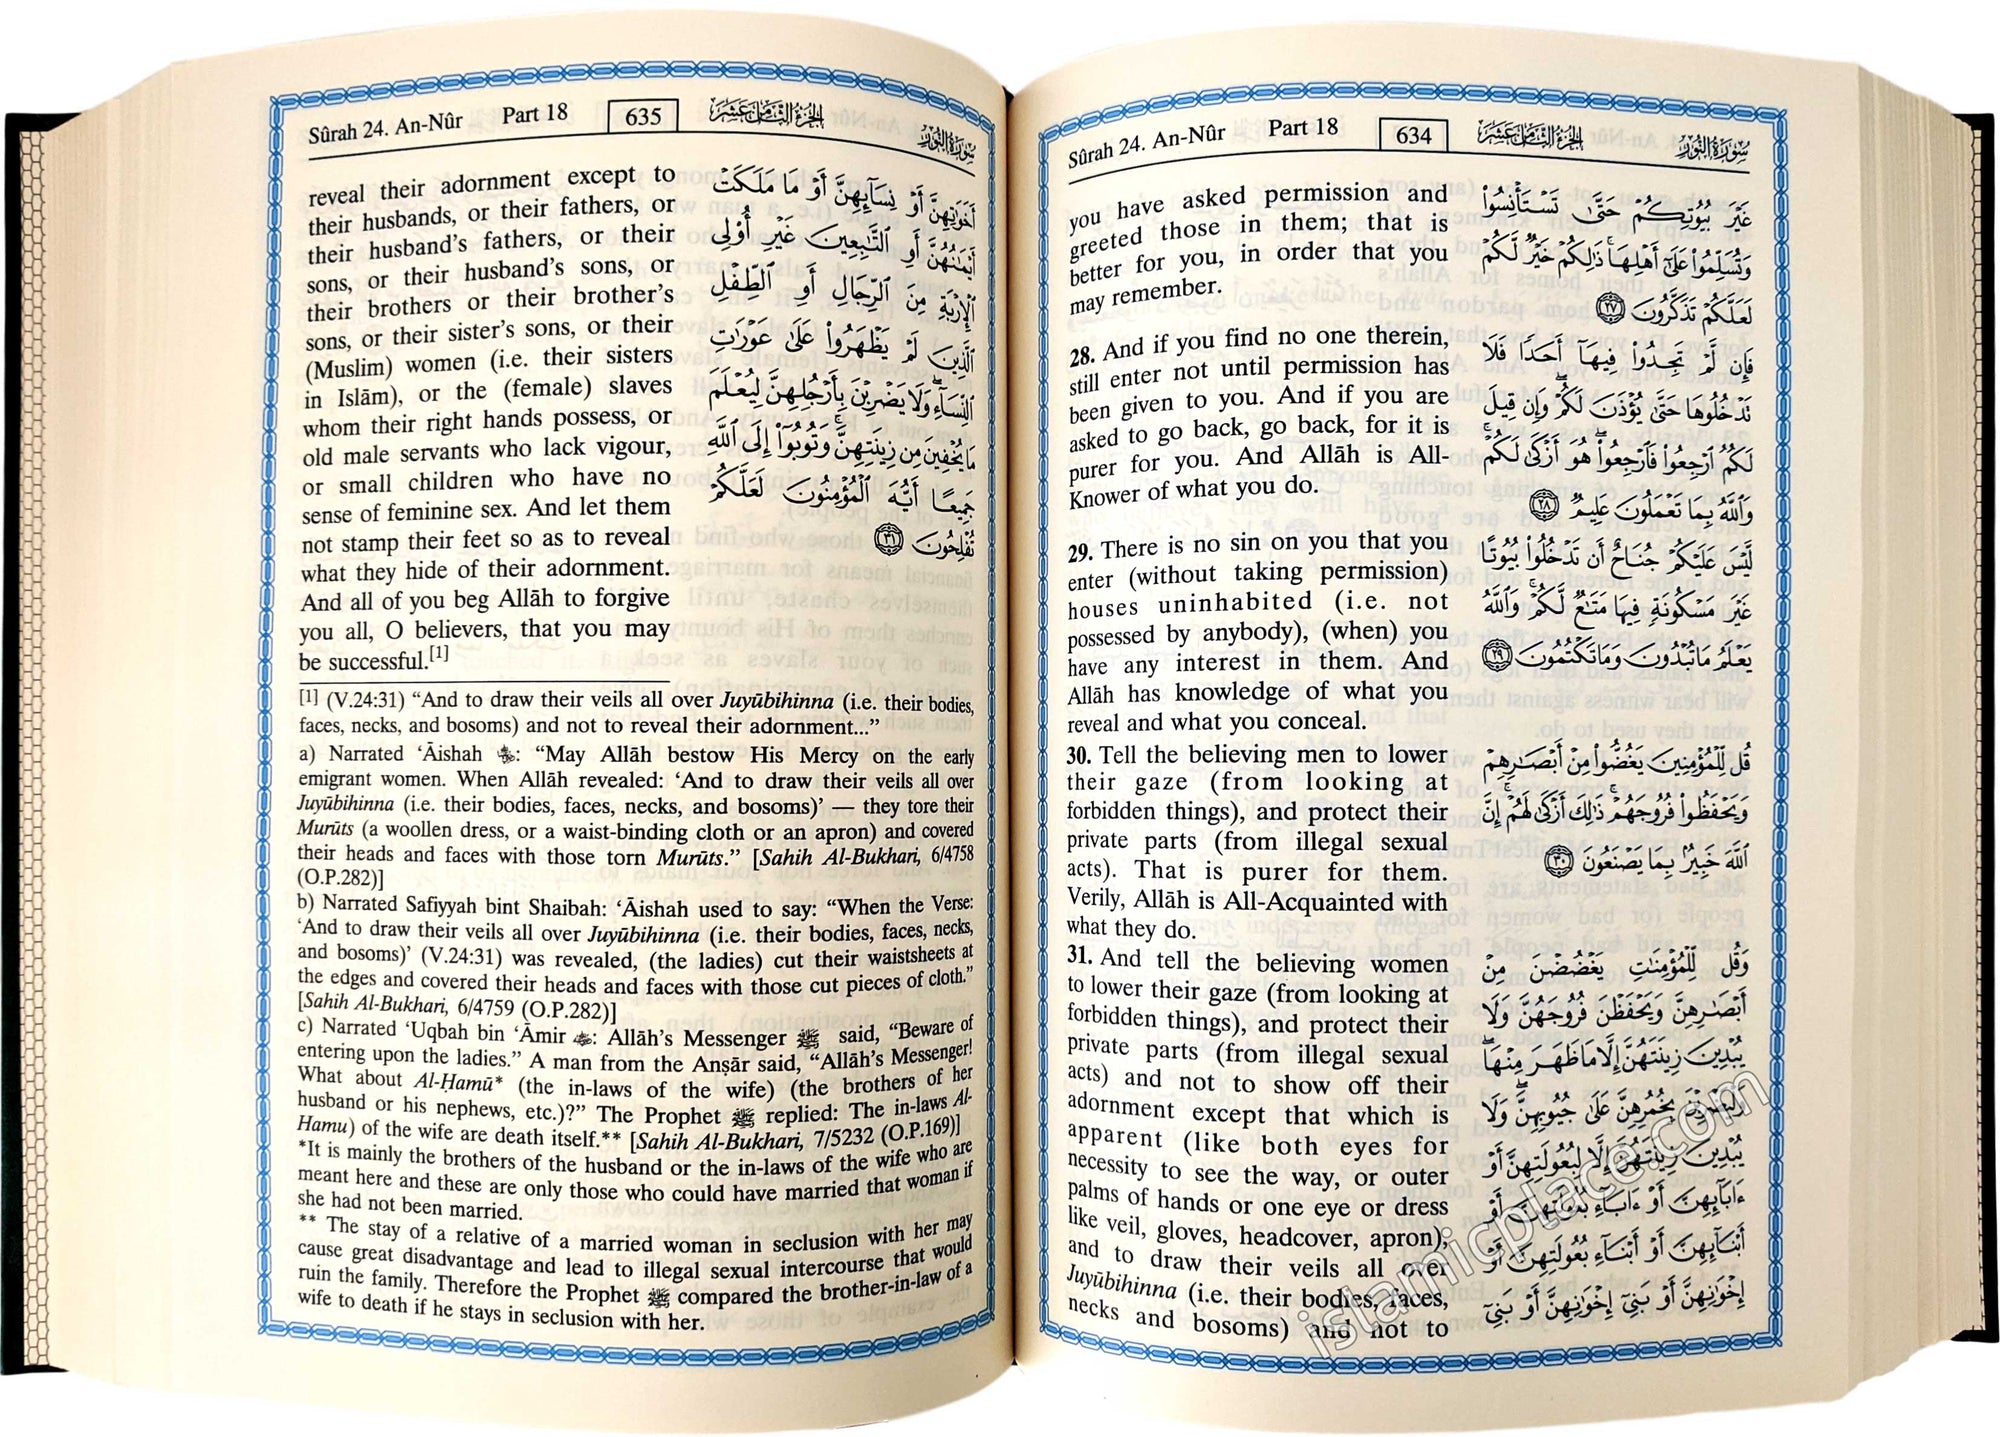 Sûrah 24. An-Nûr Part 18 634 الجزء الثامن عشر سورة النور
you have asked permission and
greeted those in them; that is
better for you, in order that you
may remember.
28. And if you find no one therein,
still enter not until permission has
been given to you. And if you are
asked to go back, go back, for it is
purer for you. And Allāh is All-
Knower of what you do.
29. There is no sin on you that you
enter (without taking permission)
houses uninhabited (i.e. not
possessed by anybody), (when) you
have any interest in them. And
Allāh has knowledge of what you
reveal and what you conceal.
30. Tell the believing men to lower
their gaze (from looking at
forbidden things), and protect their
private parts (from illegal sexual
acts). That is purer for them.
Verily, Allāh is All-Acquainted with
what they do.
31. And tell the believing women
to lower their gaze (from looking at
forbidden things), and protect their
private parts (from illegal sexual
acts) and not to show off their
adornment except that which is
apparent (like both eyes for
necessity to see the way, or outer
palms of hands or one eye or dress
like veil, gloves, headcover, apron),
and to draw their veils all over
Juyūbihinna (i.e. their bodies, faces,
necks and bosoms) and not to
غَيْرَ بُيُوتِكُمْ حَتَّىٰ تَسْتَأْنِسُوا۟
وَتُسَلِّمُوا۟ عَلَىٰٓ أَهْلِهَا ۚ ذَٰلِكُمْ خَيْرٌ لَّكُمْ
لَعَلَّكُمْ تَذَكَّرُونَ ٢٧
فَإِن لَّمْ تَجِدُوا۟ فِيهَآ أَحَدًا فَلَا
تَدْخُلُوهَا حَتَّىٰ يُؤْذَنَ لَكُمْ ۖ وَإِن قِيلَ
لَكُمُ ٱرْجِعُوا۟ فَٱرْجِعُوا۟ ۖ هُوَ أَزْكَىٰ لَكُمْ ۚ
وَٱللَّهُ بِمَا تَعْمَلُونَ عَلِيمٌ ٢٨
لَّيْسَ عَلَيْكُمْ جُنَاحٌ أَن تَدْخُلُوا۟ بُيُوتًا
غَيْرَ مَسْكُونَةٍ فِيهَا مَتَٰعٌ لَّكُمْ ۚ وَٱللَّهُ
يَعْلَمُ مَا تُبْدُونَ وَمَا تَكْتُمُونَ ٢٩
قُل لِّلْمُؤْمِنِينَ يَغُضُّوا۟ مِنْ أَبْصَٰرِهِمْ
وَيَحْفَظُوا۟ فُرُوجَهُمْ ۚ ذَٰلِكَ أَزْكَىٰ لَهُمْ ۗ إِنَّ
ٱللَّهَ خَبِيرٌۢ بِمَا يَصْنَعُونَ ٣٠
وَقُل لِّلْمُؤْمِنَٰتِ يَغْضُضْنَ مِنْ
أَبْصَٰرِهِنَّ وَيَحْفَظْنَ فُرُوجَهُنَّ وَلَا
يُبْدِينَ زِينَتَهُنَّ إِلَّا مَا ظَهَرَ مِنْهَا ۖ
وَلْيَضْرِبْنَ بِخُمُرِهِنَّ عَلَىٰ جُيُوبِهِنَّ ۖ وَلَا
يُبْدِينَ زِينَتَهُنَّ إِلَّا لِبُعُولَتِهِنَّ أَوْ
ءَابَآئِهِنَّ أَوْ ءَابَآءِ بُعُولَتِهِنَّ أَوْ
أَبْنَآئِهِنَّ أَوْ أَبْنَآءِ بُعُولَتِهِنَّ أَوْ
إِخْوَٰنِهِنَّ أَوْ بَنِىٓ إِخْوَٰنِهِنَّ أَوْ بَنِىٓ
islamicplace.com
Sûrah 24. An-Nûr Part 18 635 الجزء الثامن عشر سورة النور
reveal their adornment except to
their husbands, or their fathers, or
their husband's fathers, or their
sons, or their husband's sons, or
their brothers or their brother's
sons, or their sister's sons, or their
(Muslim) women (i.e. their sisters
in Islām), or the (female) slaves
whom their right hands possess, or
old male servants who lack vigour,
or small children who have no
sense of feminine sex. And let them
not stamp their feet so as to reveal
what they hide of their adornment.
And all of you beg Allāh to forgive
you all, O believers, that you may
be successful.[1]
أَخَوَٰتِهِنَّ أَوْ نِسَآئِهِنَّ أَوْ مَا مَلَكَتْ
أَيْمَٰنُهُنَّ أَوِ ٱلتَّٰبِعِينَ غَيْرِ أُو۟لِى
ٱلْإِرْبَةِ مِنَ ٱلرِّجَالِ أَوِ ٱلطِّفْلِ
ٱلَّذِينَ لَمْ يَظْهَرُوا۟ عَلَىٰ عَوْرَٰتِ
ٱلنِّسَآءِ ۖ وَلَا يَضْرِبْنَ بِأَرْجُلِهِنَّ لِيُعْلَمَ
مَا يُخْفِينَ مِن زِينَتِهِنَّ ۚ وَتُوبُوٓا۟ إِلَى ٱللَّهِ
جَمِيعًا أَيُّهَ ٱلْمُؤْمِنُونَ لَعَلَّكُمْ
تُفْلِحُونَ ٣١
[1] (V.24:31) "And to draw their veils all over Juyūbihinna (i.e. their bodies,
faces, necks, and bosoms) and not to reveal their adornment..."
a) Narrated 'Āishah: "May Allāh bestow His Mercy on the early
emigrant women. When Allāh revealed: 'And to draw their veils all over
Juyūbihinna (i.e. their bodies, faces, necks, and bosoms)' — they tore their
Murūts (a woollen dress, or a waist-binding cloth or an apron) and covered
their heads and faces with those torn Murūts." [Sahih Al-Bukhari, 6/4758
(O.P.282)]
b) Narrated Safiyyah bint Shaibah: 'Āishah used to say: "When the Verse:
'And to draw their veils all over Juyūbihinna (i.e. their bodies, faces, necks,
and bosoms)' (V.24:31) was revealed, (the ladies) cut their waistsheets at
the edges and covered their heads and faces with those cut pieces of cloth."
[Sahih Al-Bukhari, 6/4759 (O.P.282)]
c) Narrated 'Uqbah bin 'Āmir: Allāh's Messenger ﷺ said, "Beware of
entering upon the ladies." A man from the Anṣār said, "Allāh's Messenger!
What about Al-Ḥamū* (the in-laws of the wife) (the brothers of her
husband or his nephews, etc.)?" The Prophet ﷺ replied: The in-laws Al-
Hamu) of the wife are death itself.** [Sahih Al-Bukhari, 7/5232 (O.P.169)]
*It is mainly the brothers of the husband or the in-laws of the wife who are
meant here and these are only those who could have married that woman if
she had not been married.
** The stay of a relative of a married woman in seclusion with her may
cause great disadvantage and lead to illegal sexual intercourse that would
ruin the family. Therefore the Prophet ﷺ compared the brother-in-law of a
wife to death if he stays in seclusion with her.